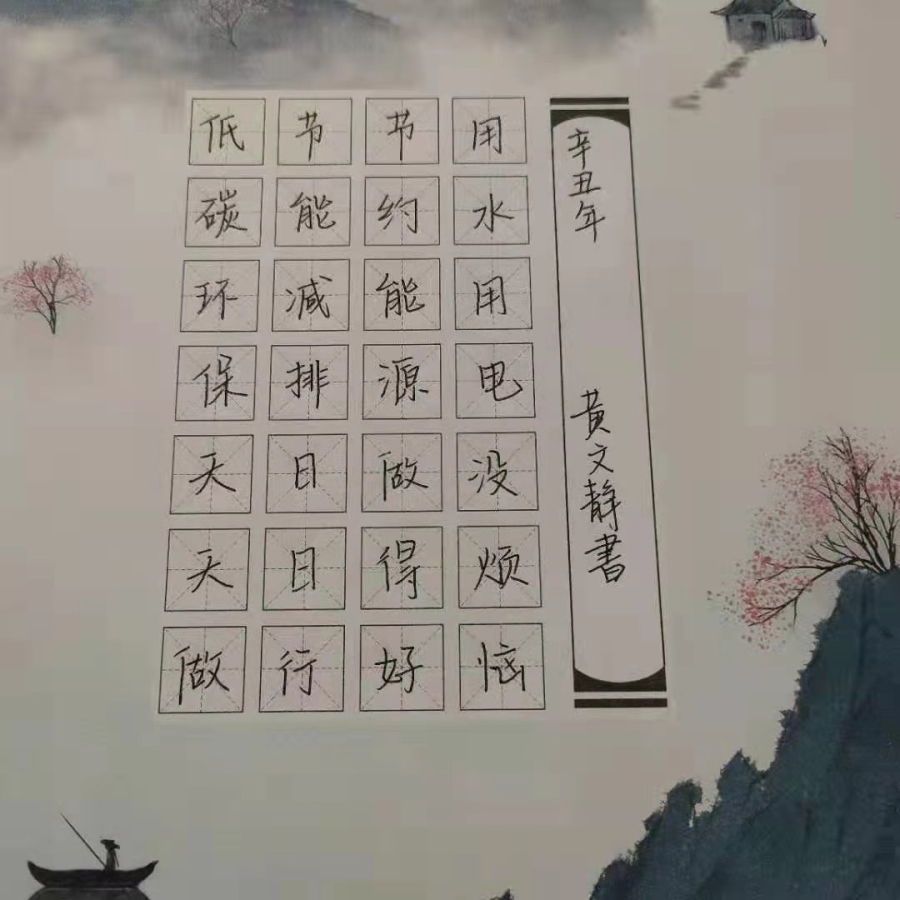 低碳环保天天做
节能减排日日行
节约能源做得好
用水用电没烦恼
辛丑年 黄文静書